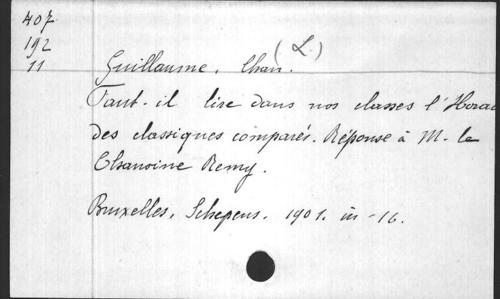 407
192
11
Guillaume, Chan. (L.)
Faut-il lire dans nos classes l'Horace
des classiques comparés. Réponse à M. le
Chanoine Remy.
Bruxelles, Schepens. 1901. in-16.